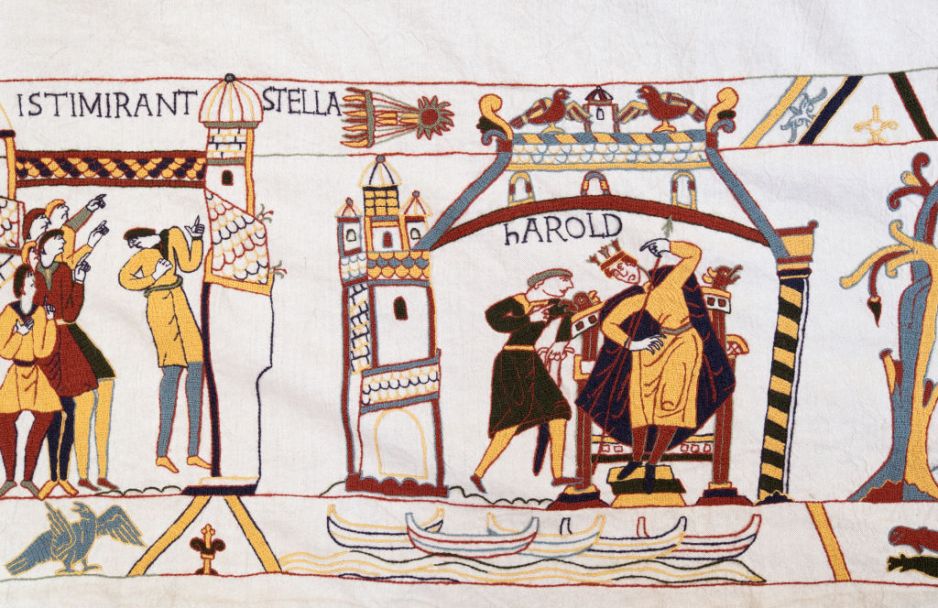 ISTIMIRANT STELLA
hAROLD